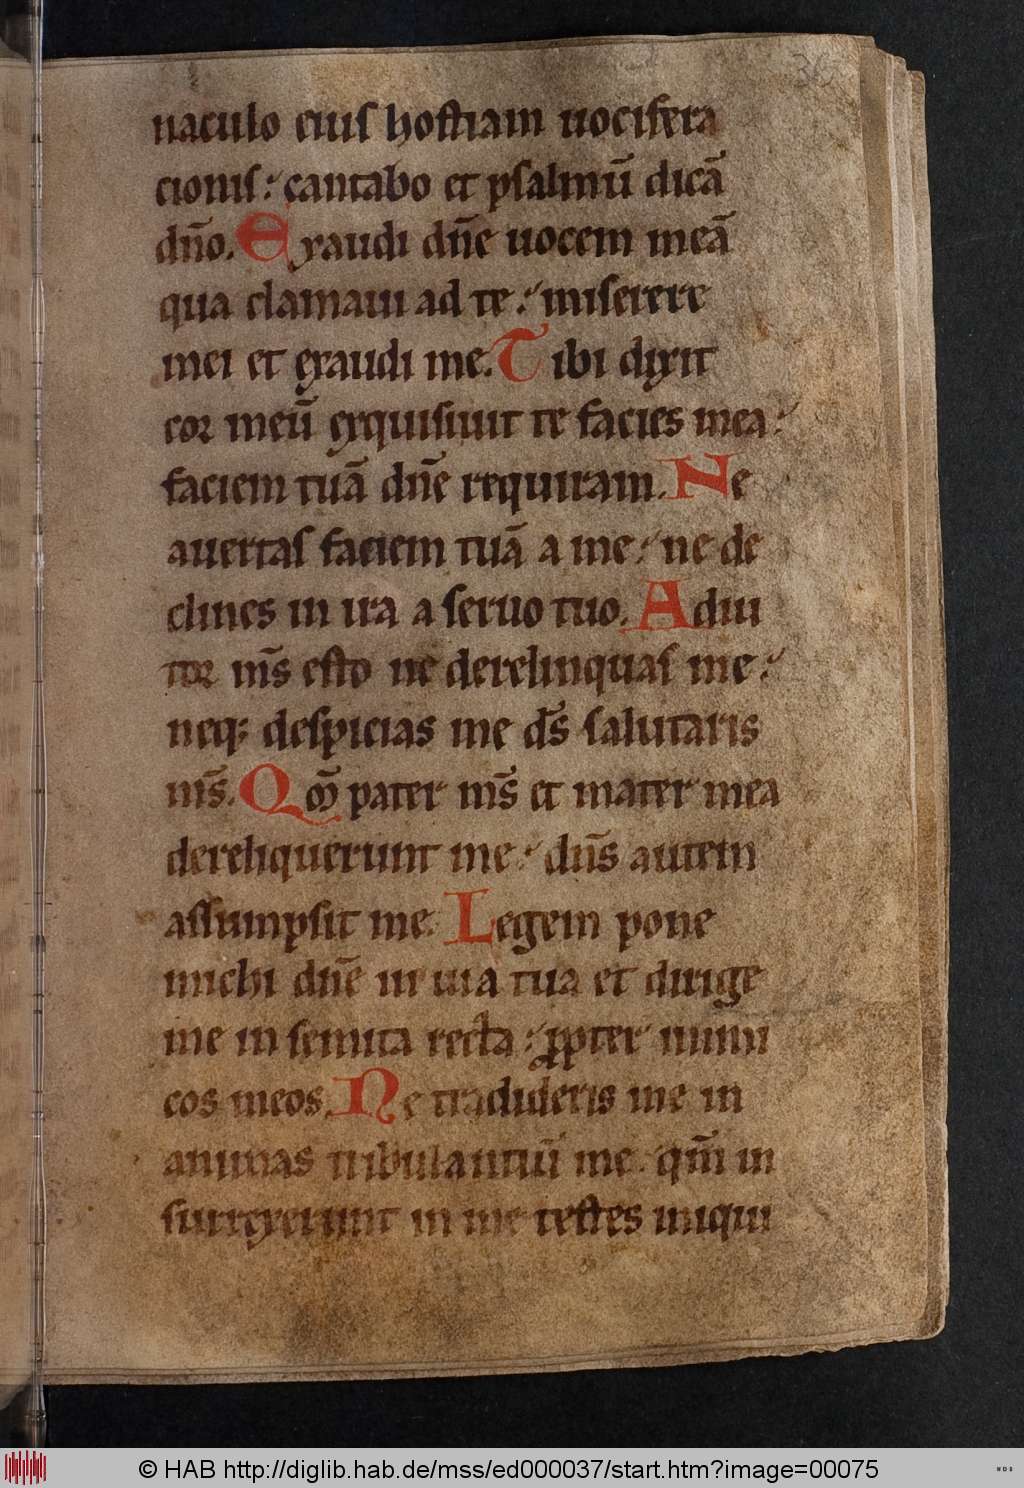 36
naculo eiuſ hoſtiam uocifera
cioniſ: cantabo et pſalmū dicā
dño. Exaudi dñe uocem meā
qua clamaui ad te: miſerere
mei et exaudi me. Tibi dixit
cor meū exquiſiuit te facies mea:
faciem tuā dñe requiram. Ne
auertaſ faciem tuā a me: ne de
clines in ira a ſeruo tuo. Adiu
tor m̄s eſto ne derelinquaſ me:
neq; deſpicias me d̄s ſalutaris
m̄s. Qm̄ pater m̄s et mater mea
dereliquerunt me: dñs autem
aſſumpſit me. Legem pone
michi dñe in uia tua et dirige
me in ſemita recta: ꝓpter inimi
cos meos. Ne tradideris me in
animas tribulantiū me: qm̄ in
ſurrexerunt in me teſtes iniqui
© HAB http://diglib.hab.de/mss/ed000037/start.htm?image=00075